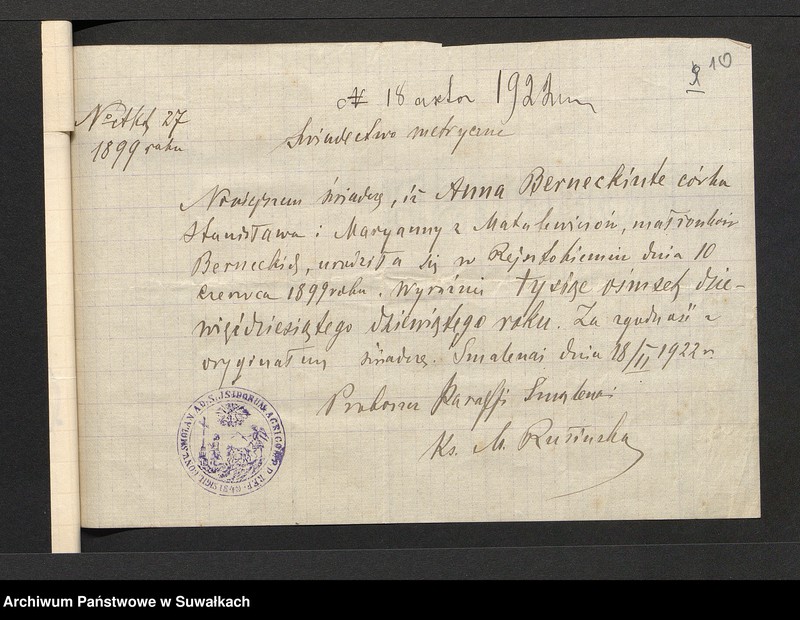 10
№ 18 1922
№ Akt 27
1899 roku
Świadectwo metryczne
Niniejszem świadczę, iż Anna Berneckiute córka
Stanisława i Maryanny z Matulewiczów, małżonków
Berneckich, urodziła się w Rejsztokiemiu dnia 10
czerwca 1899 roku. Wyraźnie tysiąc ośmset dzie-
więćdziesiątego dziewiątego roku. Za zgodność z
oryginałem świadczę. Smaleni dnia 18/II 1922 r.
Proboszcz Parafji Smaleni
Ks. M. Rusiecka
Archiwum Państwowe w Suwałkach